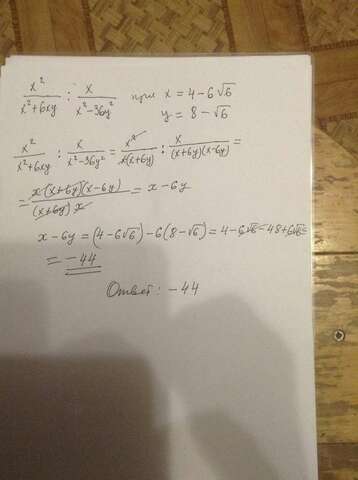 x²/(x²+6xy) : x/(x²−36y²) при x = 4−6√6
y = 8−√6
x²/(x²+6xy) : x/(x²−36y²) = x²/(x(x+6y)) : x/((x+6y)(x−6y)) =
= x(x+6y)(x−6y)/((x+6y)x) = x−6y
x−6y = (4−6√6)−6(8−√6) = 4−6√6−48+6√6=
= −44
Ответ: −44